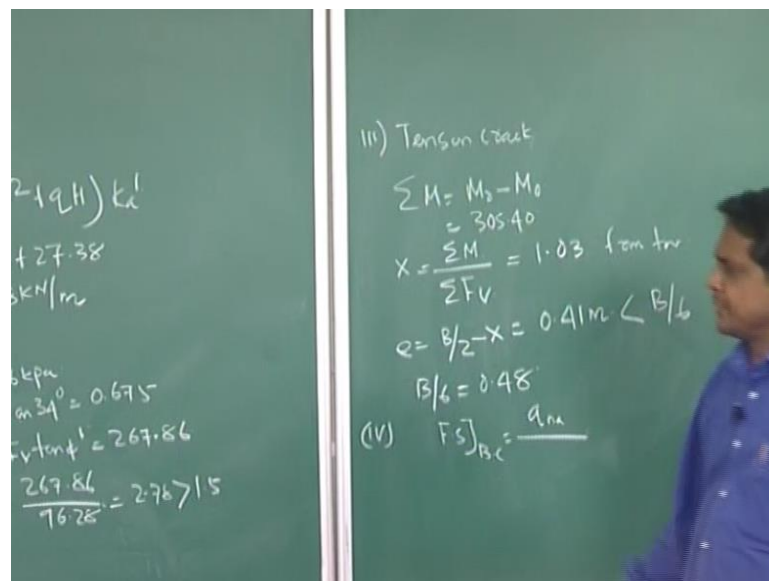 ² + qH) Ka'
+ 27.38
kN/m
kpa
an 34° = 0.675
Fv tan φ' = 267.86
267.86 / 96.28 = 2.78 > 1.5
III) Tension crack
∑M = M₂ - M₀
= 305.40
x = ∑M / ∑Fv = 1.03 from toe
e = B/2 - x = 0.41m < B/6
B/6 = 0.48
(IV) FS]B.C =